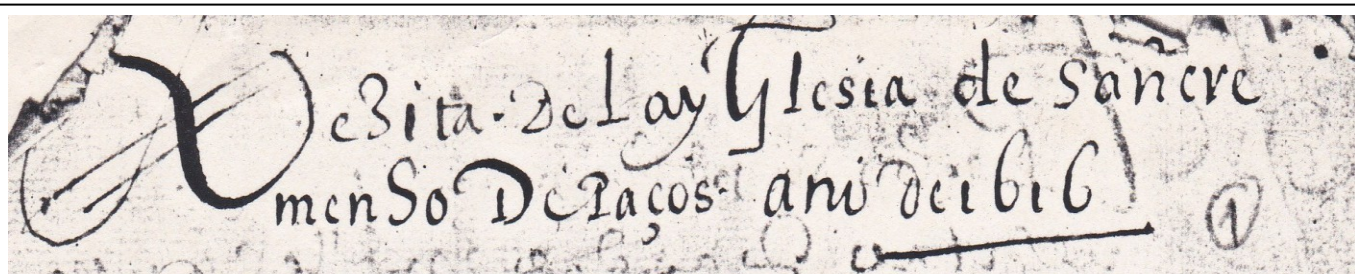 Vezita. De lay Yglesia de Sañcre
menso De Paços. anno de 1616
1